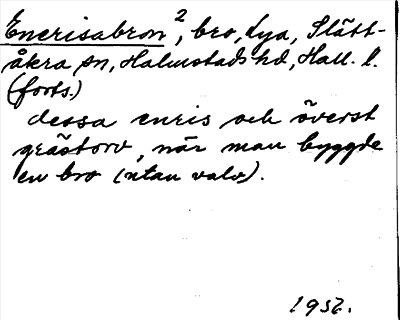 Enerisabron², bro, Lya, Slätt-
åkra sn, Halmstads hd, Hall. l.
(forts.)
dessa eneris och överst
grästorv, när man byggde
en bro (utan valv).
1956.